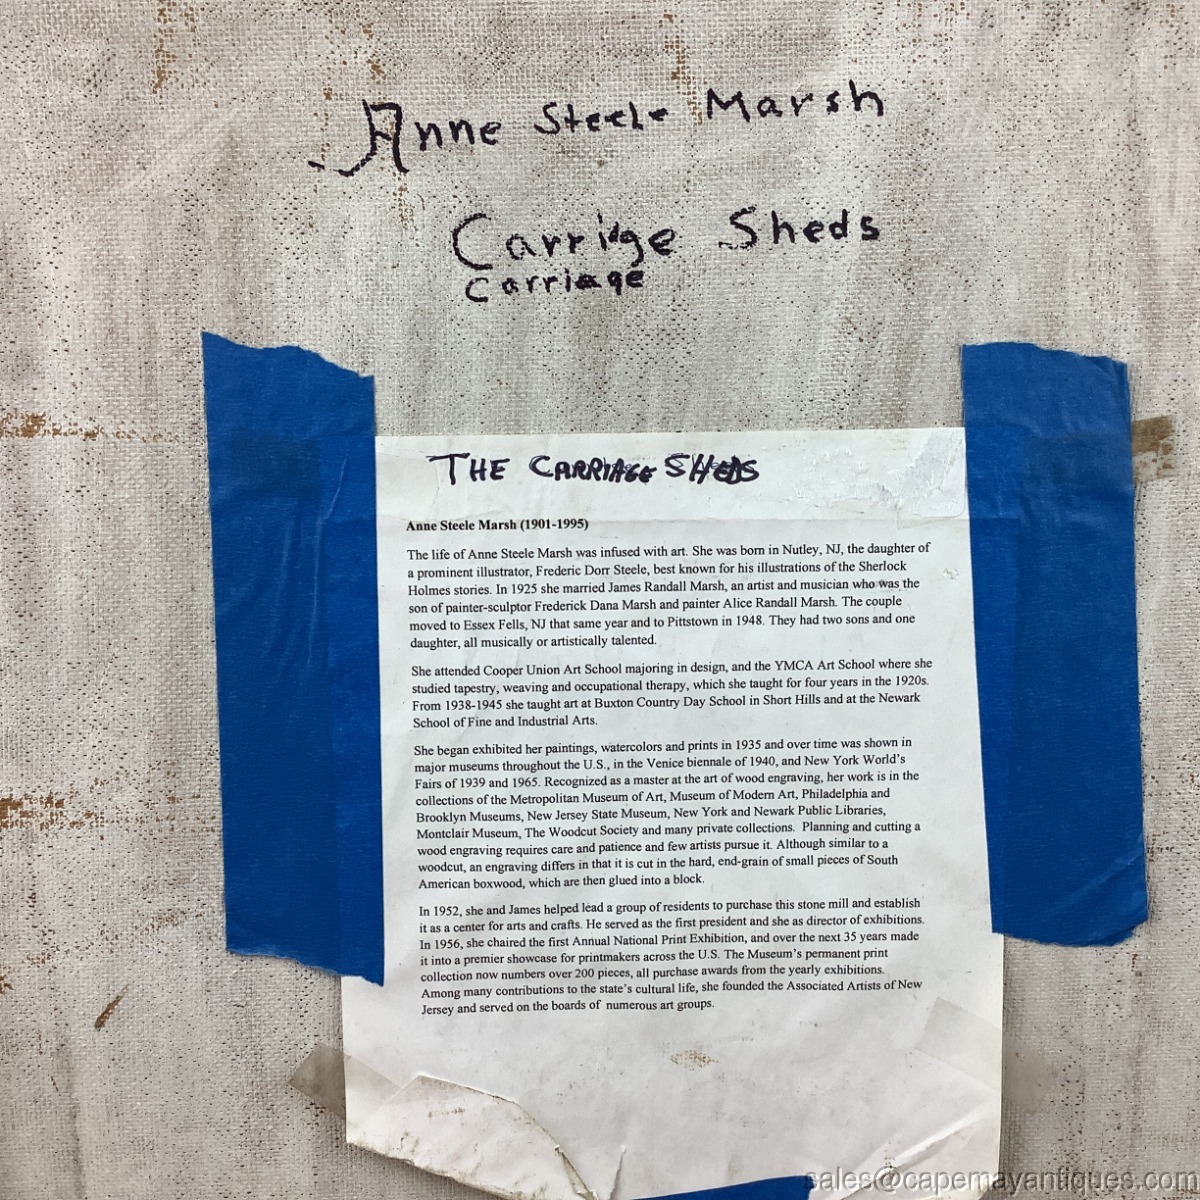 Anne Steele Marsh
Carridge Sheds
Carriage
THE CARRIAGE SHEDS
Anne Steele Marsh (1901-1995)
The life of Anne Steele Marsh was infused with art. She was born in Nutley, NJ, the daughter of
a prominent illustrator, Frederic Dorr Steele, best known for his illustrations of the Sherlock
Holmes stories. In 1925 she married James Randall Marsh, an artist and musician who was the
son of painter-sculptor Frederick Dana Marsh and painter Alice Randall Marsh. The couple
moved to Essex Fells, NJ that same year and to Pittstown in 1948. They had two sons and one
daughter, all musically or artistically talented.
She attended Cooper Union Art School majoring in design, and the YMCA Art School where she
studied tapestry, weaving and occupational therapy, which she taught for four years in the 1920s.
From 1938-1945 she taught art at Buxton Country Day School in Short Hills and at the Newark
School of Fine and Industrial Arts.
She began exhibited her paintings, watercolors and prints in 1935 and over time was shown in
major museums throughout the U.S., in the Venice biennale of 1940, and New York World's
Fairs of 1939 and 1965. Recognized as a master at the art of wood engraving, her work is in the
collections of the Metropolitan Museum of Art, Museum of Modern Art, Philadelphia and
Brooklyn Museums, New Jersey State Museum, New York and Newark Public Libraries,
Montclair Museum, The Woodcut Society and many private collections. Planning and cutting a
wood engraving requires care and patience and few artists pursue it. Although similar to a
woodcut, an engraving differs in that it is cut in the hard, end-grain of small pieces of South
American boxwood, which are then glued into a block.
In 1952, she and James helped lead a group of residents to purchase this stone mill and establish
it as a center for arts and crafts. He served as the first president and she as director of exhibitions.
In 1956, she chaired the first Annual National Print Exhibition, and over the next 35 years made
it into a premier showcase for printmakers across the U.S. The Museum's permanent print
collection now numbers over 200 pieces, all purchase awards from the yearly exhibitions.
Among many contributions to the state's cultural life, she founded the Associated Artists of New
Jersey and served on the boards of numerous art groups.
sales@capemayantiques.com